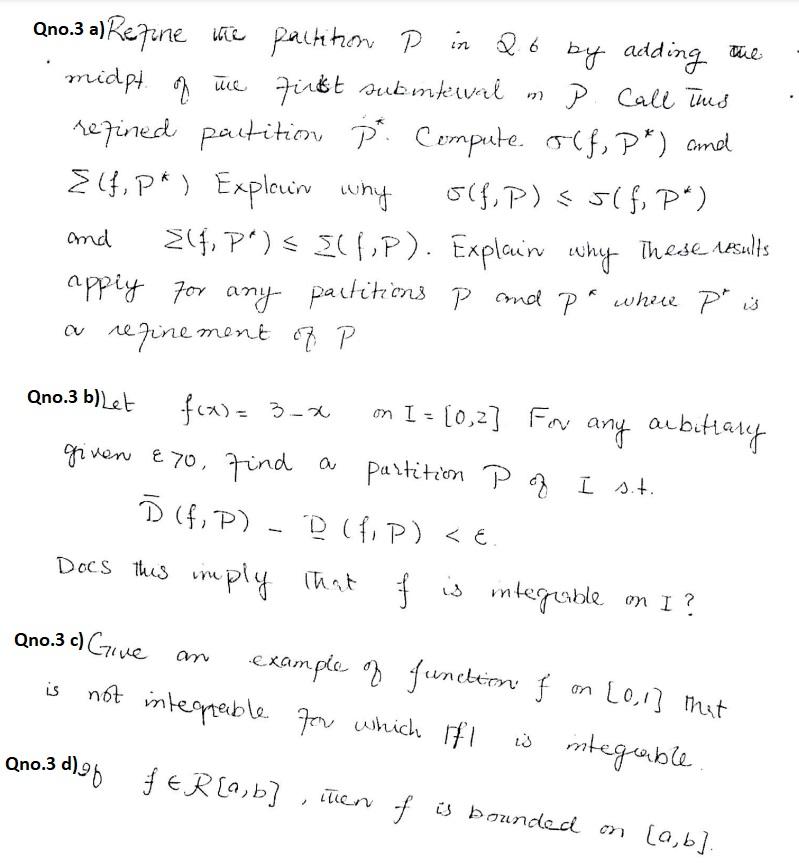 Qno.3 a) Refine the partition P in Q.6 by adding the
midpt. of the first subinterval in P. Call this
refined partition P*. Compute σ(f, P*) and
Σ(f, P*) Explain why σ(f, P) ≤ σ(f, P*)
and Σ(f, P*) ≤ Σ(f, P). Explain why These results
apply for any partitions P and P* where P* is
a refinement of P
Qno.3 b) Let f(x) = 3-x on I = [0,2] For any arbitrary
given ε > 0, find a partition P of I s.t.
D̄ (f, P) - D̲ (f, P) < ε.
Does this imply that f is integrable on I?
Qno.3 c) Give an example of function f on [0,1] that
is not integrable for which |f| is integrable.
Qno.3 d) If f ∈ R[a,b], then f is bounded on [a,b].